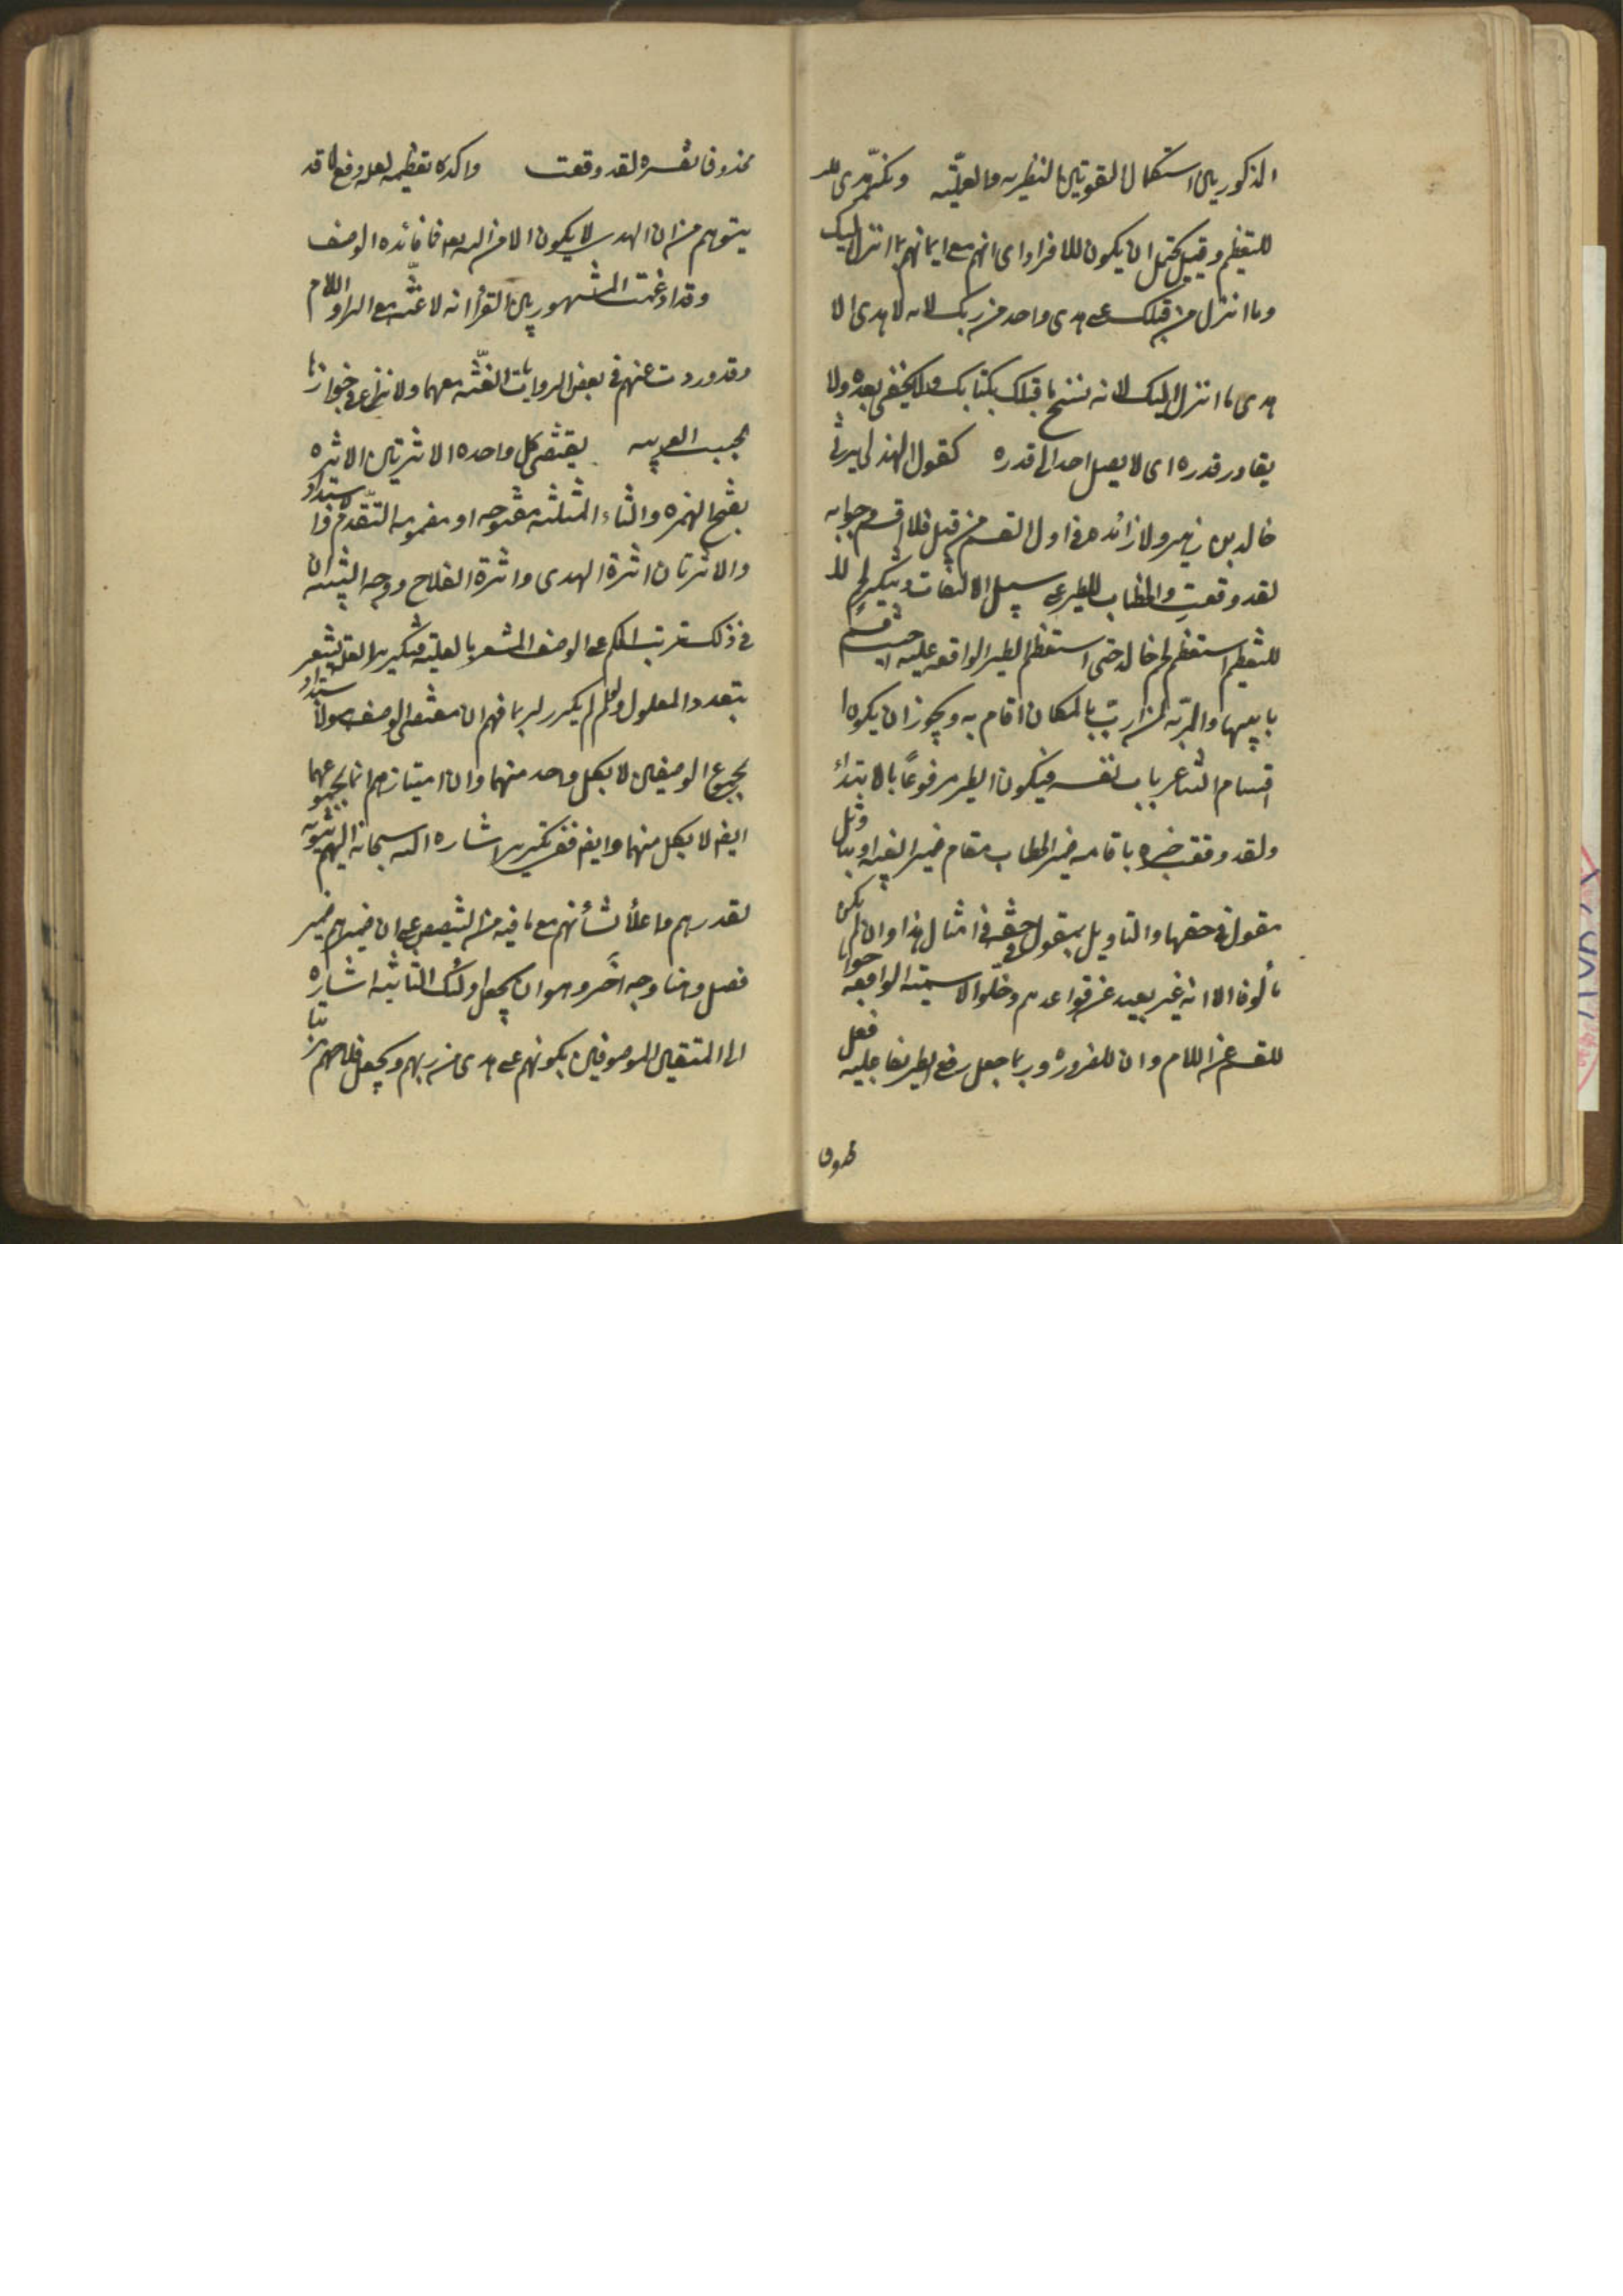 المذكورين استكمال القوتين النظرية والعملية ونكّر هدى
للتعظيم وقيل يحتمل ان يكون للافراد اى انهم مع ايمانهم بما انزل اليك
وما انزل من قبلك على هدى واحد من ربك لانه لا هدى الا
هدى ما انزل اليك لانه نسخ ما قبلك بكتابك ولا يخفى بعده ولا
يقادر قدره اى لا يصل احد الى قدره كقول الهذلى يرثى
خالد بن زهير ولا زائدة فى اول القسم من قبيل فلا اقسم وجوابه
لقد وقعت والخطاب للطير على سبيل الالتفات وتنكير لحم
للتعظيم استعظم لحم خالد حتى استعظم الطير الواقعة عليه حيث اقسم
بابيها والمربّة من اربّ بالمكان اقام به ويجوز ان يكون
اقسام الشاعر باب نفسه فيكون الطير مرفوعًا بالابتداء
ولقد وقعت خبره باقامة ضمير الخطاب مقام ضمير الغيبة او بتاويل
مقول فى حقها والتاويل بمقول فى حقه فى امثال هذا وان لم يكن
مألوفا الا انه غير بعيد عن قواعدهم وخلّو الاسمية الواقعة جوابا
للقسم عن اللام وان للضرورة وربما جعل رفع الطير بفاعلية فعل
محذوف
محذوف يفسره لقد وقعت واكد تعظيمه لعله دفع لما قد
يتوهم من ان الهدى لا يكون الا من الله تعالى فما فائدة الوصف
وقد ادغمت المشهور بين القراء انه لا غنّة مع الراء واللام
وقد وردت عنهم فى بعض الروايات الغنّة معهما ولا نزاع فى جوازها
بحسب العربية يقتضى كل واحدة الاثرتين الاثرة
بفتح الهمزة والثاء المثلثة مفتوحة او مضمومة التقدّم والاستبداد
والاثرتان اثرة الهدى واثرة الفلاح ووجه التنبيه ان
فى ذلك ترتب الحكم على الوصف المشعر بالعلية فتكرير العلة يشعر
بتعدد المعلول ولو لم يكرر لربما فهم ان مقتضى الوصف هو الاستبداد
بمجموع الوصفين لا بكل واحد منهما وان امتيازهم انما بمجموعهما
ايضا لا بكل منهما وايضا ففى تكرير اشارة الله سبحانه اليهم تنويه
لقدرهم واعلاء لشأنهم مع ما فيه من التنصيص على ان ضميرهم ضمير
فصل وهنا وجه آخر وهو ان يجعل اولئك الثانية اشارة
الى المتقين الموصوفين بكونهم على هدى من ربهم ويجعل فلاحهم مترتبا